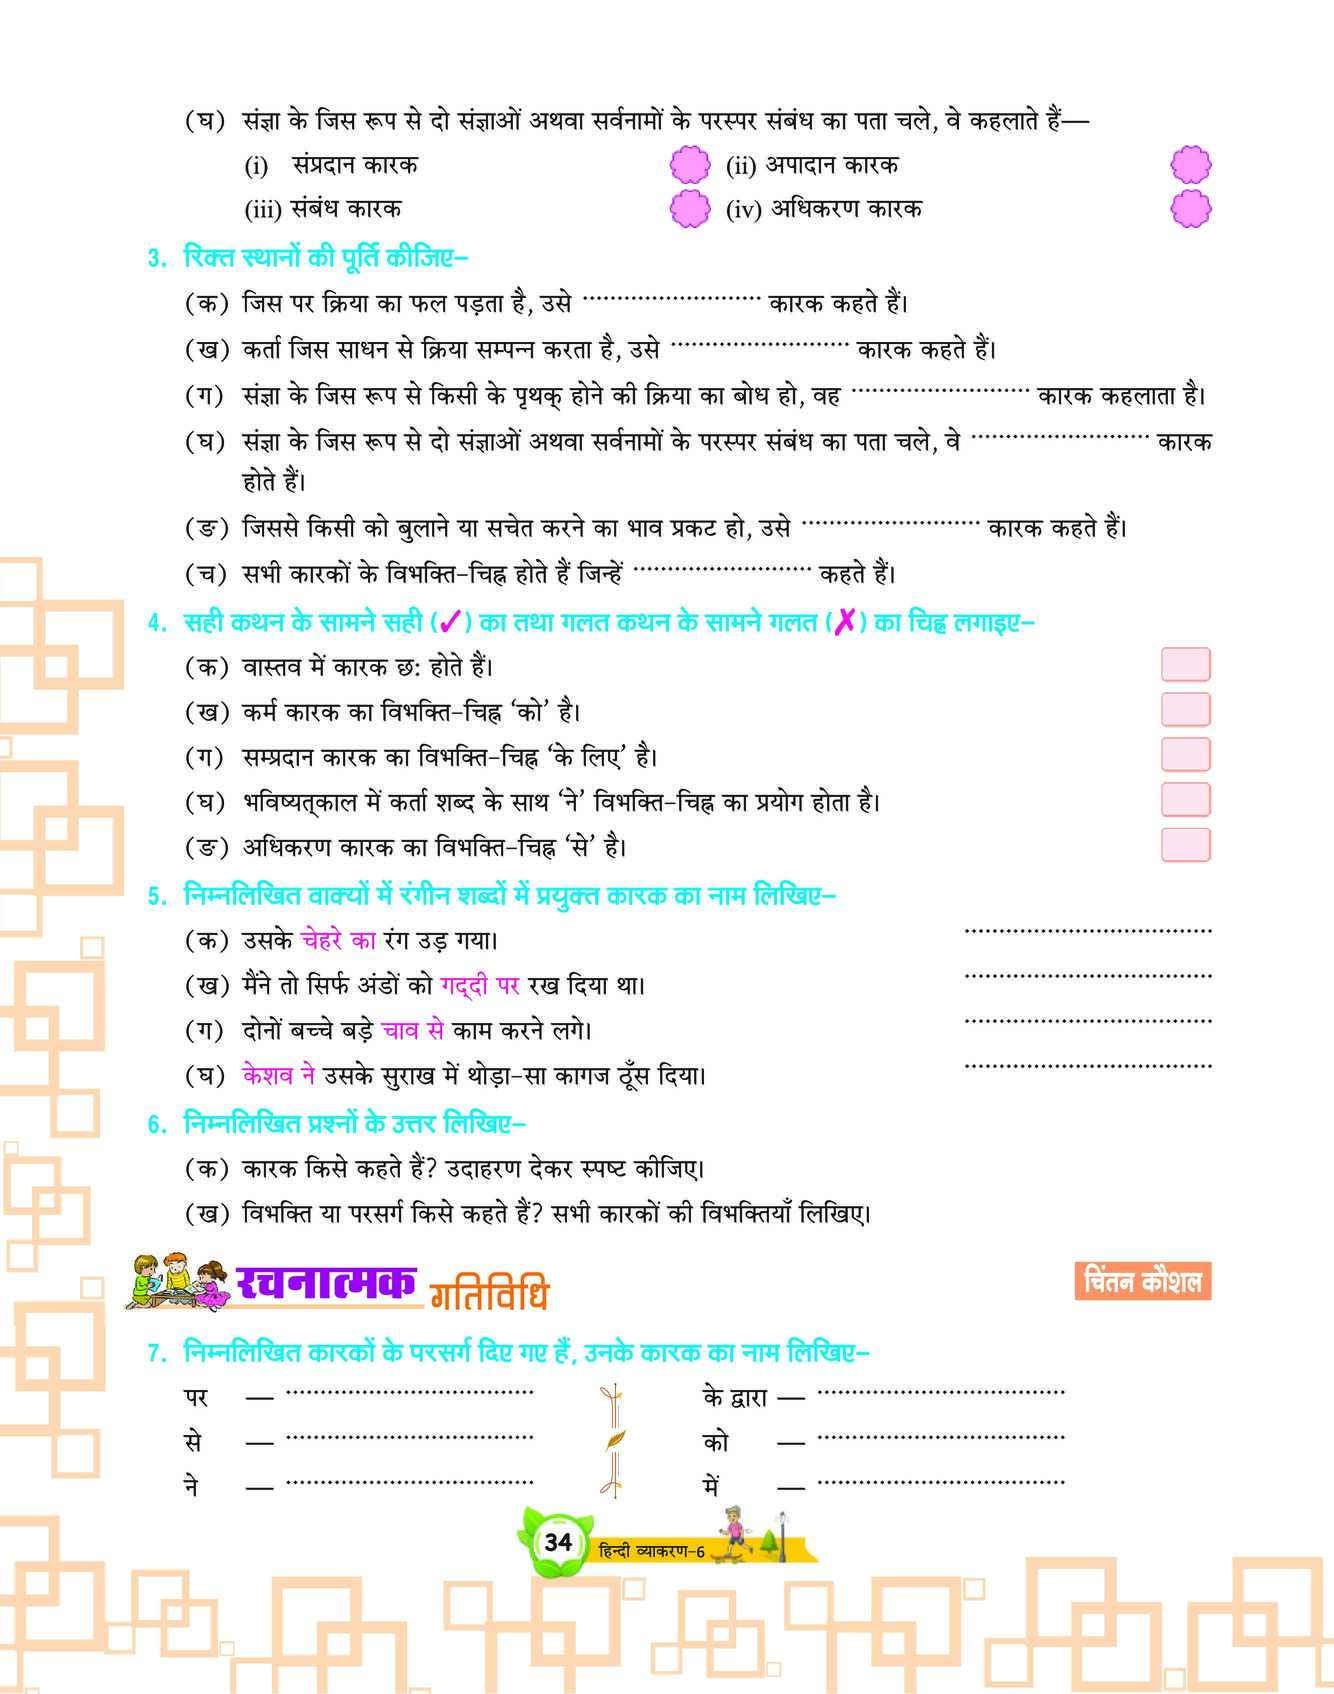 (घ) संज्ञा के जिस रूप से दो संज्ञाओं अथवा सर्वनामों के परस्पर संबंध का पता चले, वे कहलाते हैं—
(i) संप्रदान कारक (ii) अपादान कारक
(iii) संबंध कारक (iv) अधिकरण कारक
3. रिक्त स्थानों की पूर्ति कीजिए–
(क) जिस पर क्रिया का फल पड़ता है, उसे .......................... कारक कहते हैं।
(ख) कर्ता जिस साधन से क्रिया सम्पन्न करता है, उसे .......................... कारक कहते हैं।
(ग) संज्ञा के जिस रूप से किसी के पृथक् होने की क्रिया का बोध हो, वह .......................... कारक कहलाता है।
(घ) संज्ञा के जिस रूप से दो संज्ञाओं अथवा सर्वनामों के परस्पर संबंध का पता चले, वे .......................... कारक
होते हैं।
(ङ) जिससे किसी को बुलाने या सचेत करने का भाव प्रकट हो, उसे .......................... कारक कहते हैं।
(च) सभी कारकों के विभक्ति–चिह्न होते हैं जिन्हें .......................... कहते हैं।
4. सही कथन के सामने सही (✓) का तथा गलत कथन के सामने गलत (✗) का चिह्न लगाइए–
(क) वास्तव में कारक छ: होते हैं।
(ख) कर्म कारक का विभक्ति–चिह्न ‘को’ है।
(ग) सम्प्रदान कारक का विभक्ति–चिह्न ‘के लिए’ है।
(घ) भविष्यत्काल में कर्ता शब्द के साथ ‘ने’ विभक्ति–चिह्न का प्रयोग होता है।
(ङ) अधिकरण कारक का विभक्ति–चिह्न ‘से’ है।
5. निम्नलिखित वाक्यों में रंगीन शब्दों में प्रयुक्त कारक का नाम लिखिए–
(क) उसके चेहरे का रंग उड़ गया। ....................................
(ख) मैंने तो सिर्फ अंडों को गद्दी पर रख दिया था। ....................................
(ग) दोनों बच्चे बड़े चाव से काम करने लगे। ....................................
(घ) केशव ने उसके सुराख में थोड़ा–सा कागज ठूँस दिया। ....................................
6. निम्नलिखित प्रश्नों के उत्तर लिखिए–
(क) कारक किसे कहते हैं? उदाहरण देकर स्पष्ट कीजिए।
(ख) विभक्ति या परसर्ग किसे कहते हैं? सभी कारकों की विभक्तियाँ लिखिए।
रचनात्मक गतिविधि चिंतन कौशल
7. निम्नलिखित कारकों के परसर्ग दिए गए हैं, उनके कारक का नाम लिखिए–
पर — .................................... के द्वारा — ....................................
से — .................................... को — ....................................
ने — .................................... में — ....................................
34 हिन्दी व्याकरण–6